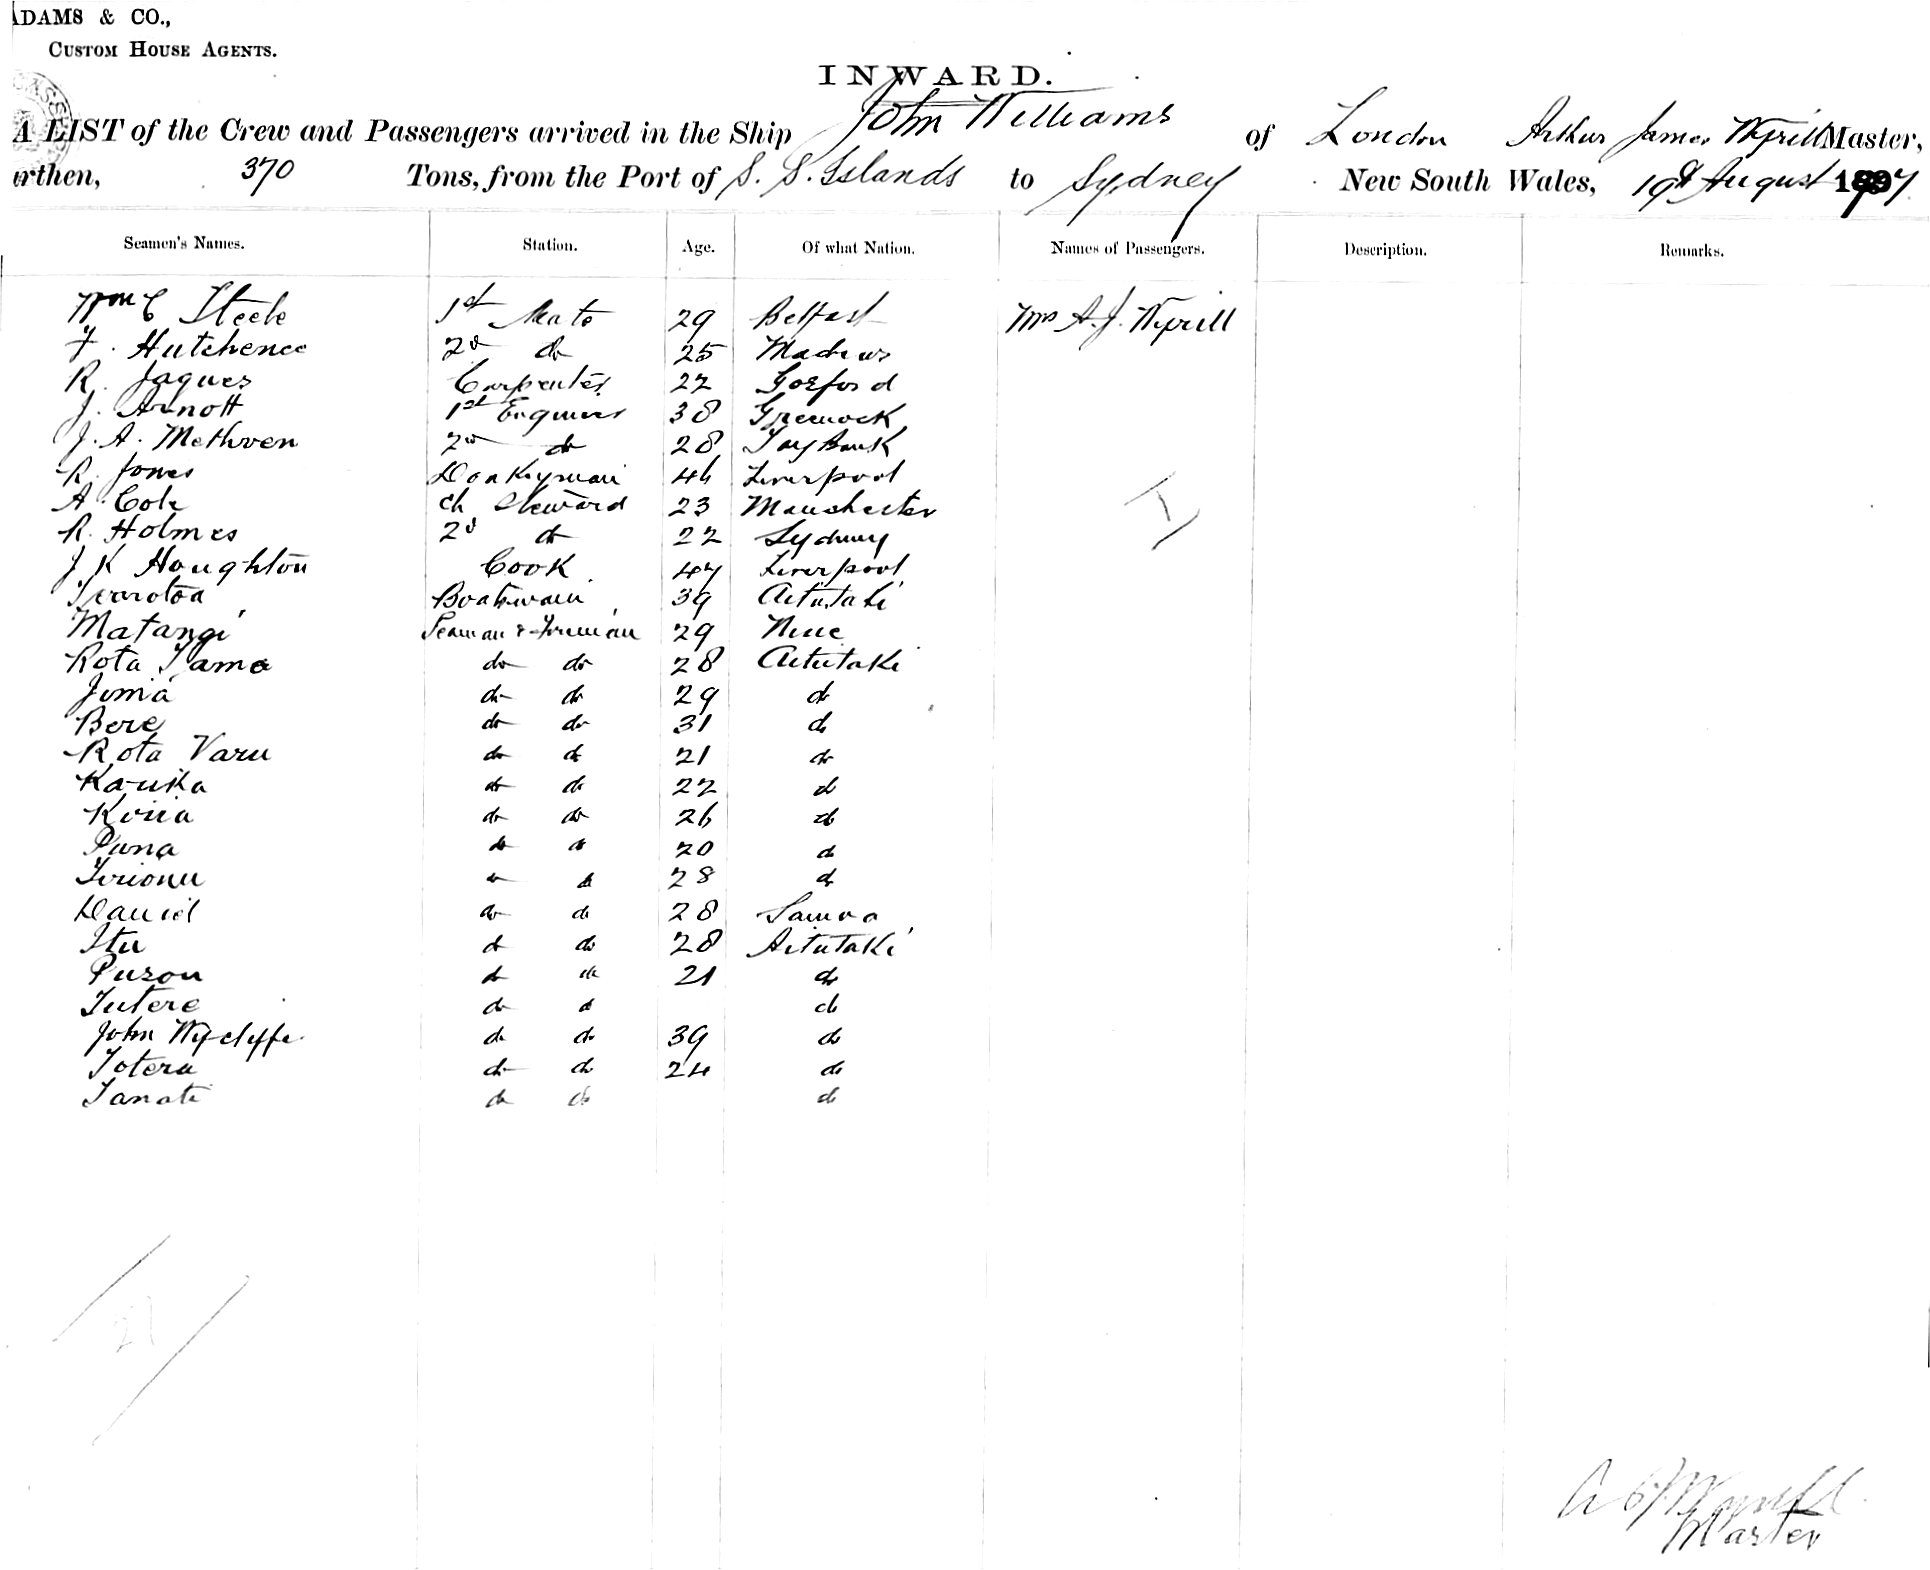 ADAMS & CO.,
CUSTOM HOUSE AGENTS.
INWARD.
A LIST of the Crew and Passengers arrived in the Ship John Williams of London Arthur James Wyrill Master,
rthen, 370 Tons, from the Port of S. S. Islands to Sydney New South Wales, 19th August 1897
Seamen's Names. Station. Age. Of what Nation. Names of Passengers. Description. Remarks.
Wm C Steele 1st Mate 29 Belfast Mrs A. J. Wyrill
F. Hutchence 2d do 25 Madras
R. Jaques Carpenter 22 Gosford
J. Arnott 1st Engineer 38 Greenock
J. A. Methven 2d do 28 Tay Bank
R. Jones Donkeyman 46 Liverpool
A. Cole Ch Steward 23 Manchester
R. Holmes 2d do 22 Sydney
J K Houghton Cook 47 Liverpool
Boatswain 39 Aitutaki
Matangi Seaman & Fireman 29 Niue
Rota Tama do do 28 Aitutaki
Jimia do do 29 do
Bere do do 31 do
Rota Varu do do 21 do
Kauka do do 22 do
do do 26 do
Puna do do 20 do
do do 28 do
Daniel do do 28 Samoa
Itu do do 28 Aitutaki
do do 21 do
Tutere do do do
John Wycliffe do do 39 do
Totera do do 24 do
Tanati do do do
21
Master